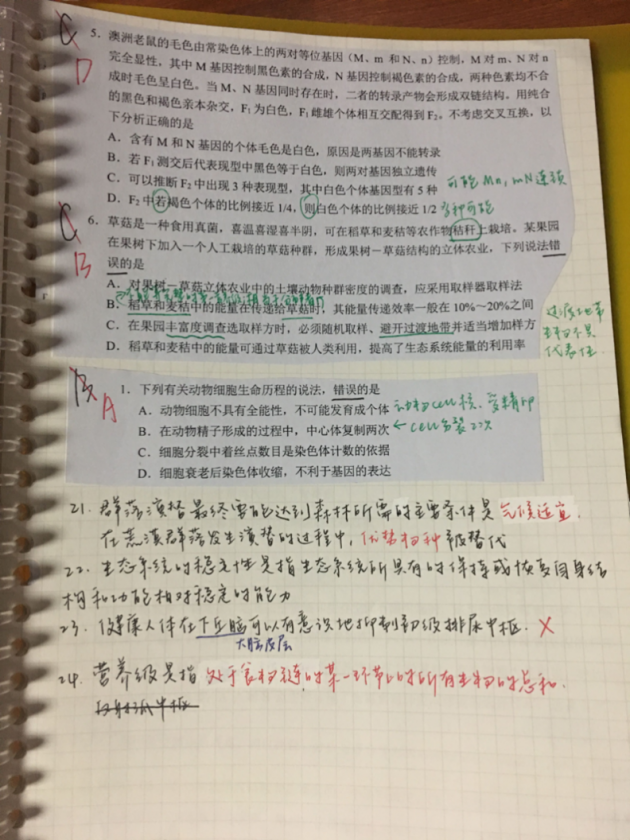 C
D
5. 澳洲老鼠的毛色由常染色体上的两对等位基因（M、m 和 N、n）控制，M 对 m、N 对 n
完全显性，其中 M 基因控制黑色素的合成，N 基因控制褐色素的合成，两种色素均不合
成时毛色呈白色。当 M、N 基因同时存在时，二者的转录产物会形成双链结构。用纯合
的黑色和褐色亲本杂交，F₁ 为白色，F₁ 雌雄个体相互交配得到 F₂。不考虑交叉互换，以
下分析正确的是
A．含有 M 和 N 基因的个体毛色是白色，原因是两基因不能转录
B．若 F₁ 测交后代表现型中黑色等于白色，则两对基因独立遗传
C．可以推断 F₂ 中出现 3 种表现型，其中白色个体基因型有 5 种 可能 Mn, mN 连锁
D．F₂ 中若褐色个体的比例接近 1/4，则白色个体的比例接近 1/2
C
B
6. 草菇是一种食用真菌，喜温喜湿喜半阴，可在稻草和麦秸等农作物秸秆上栽培。某果园
在果树下加入一个人工栽培的草菇种群，形成果树－草菇结构的立体农业，下列说法错
误的是
A．对果树－草菇立体农业中的土壤动物种群密度的调查，应采用取样器取样法
B．稻草和麦秸中的能量在传递给草菇时，其能量传递效率一般在 10%～20%之间
C．在果园丰富度调查选取样方时，必须随机取样、避开过渡地带并适当增加样方
D．稻草和麦秸中的能量可通过草菇被人类利用，提高了生态系统能量的利用率
过渡地带
生物不具
代表性
B
A
1．下列有关动物细胞生命历程的说法，错误的是
A．动物细胞不具有全能性，不可能发育成个体 动物cell核、受精卵
B．在动物精子形成的过程中，中心体复制两次 ← cell分裂2次
C．细胞分裂中着丝点数目是染色体计数的依据
D．细胞衰老后染色体收缩，不利于基因的表达
21. 群落演替最终要能达到森林所需的主要条件是气候适宜.
在荒漠群落发生演替的过程中，优势物种被替代
22. 生态系统的稳定性是指生态系统所具有的保持或恢复自身结
构和功能相对稳定的能力
23. 健康人体在下丘脑可以有意识地抑制初级排尿中枢. ×
大脑皮层
24. 营养级是指处于食物链的某一环节上的所有生物的总和.